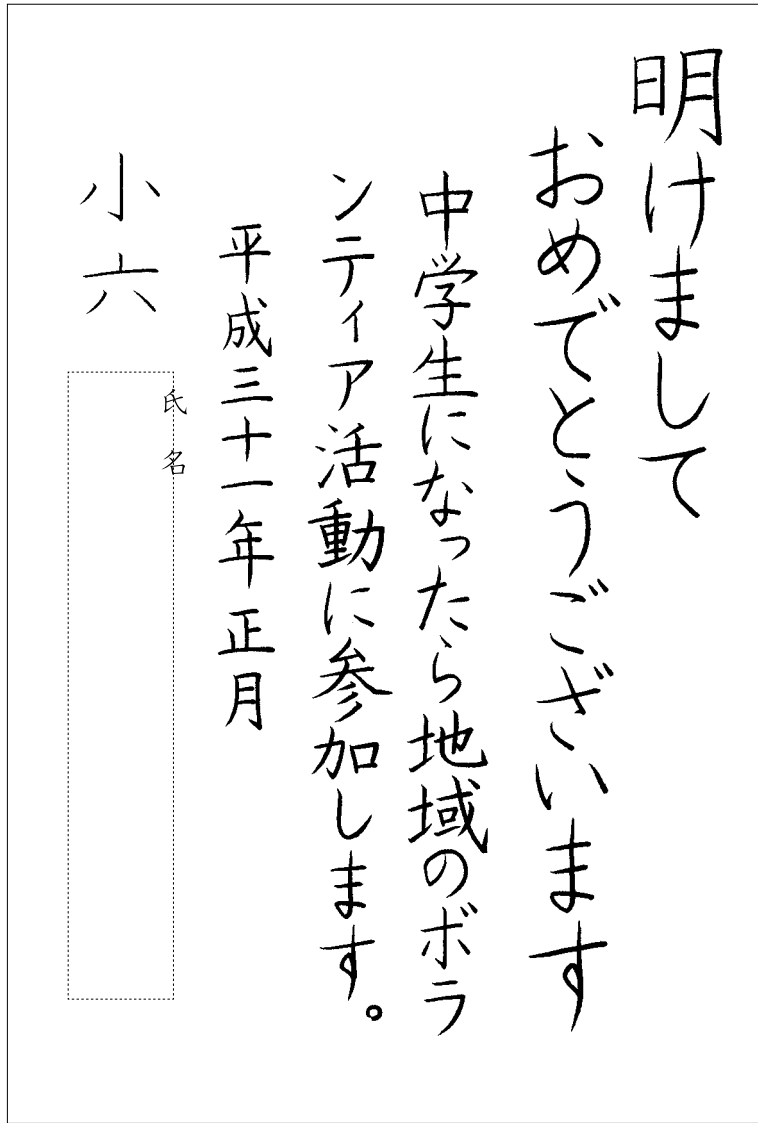 明けまして
おめでとうございます
中学生になったら地域のボラ
ンティア活動に参加します。
平成三十一年正月
小六
氏名